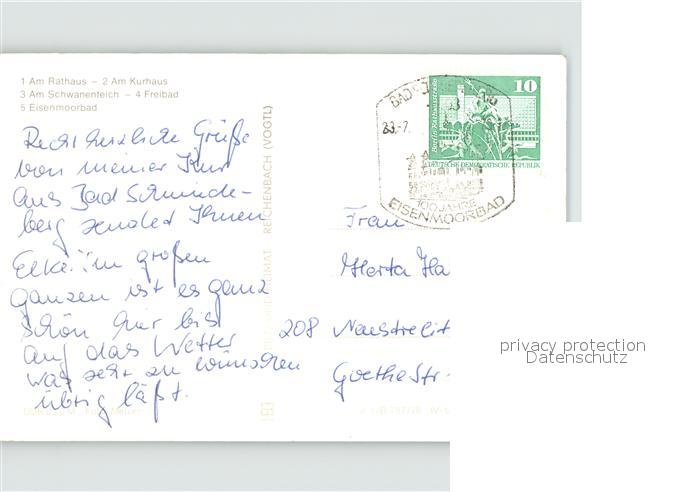 1 Am Rathaus – 2 Am Kurhaus
3 Am Schwanenteich – 4 Freibad
5 Eisenmoorbad
Recht herzliche Grüße
von meiner Kur
aus Bad Schmiede-
berg sendet Ihnen
Elke. Im großen
ganzen ist es ganz
schön hier bis
auf das Wetter
was sehr zu wünschen
übrig läßt.
REICHENBACH (VOGTL)
10
DEUTSCHE DEMOKRATISCHE REPUBLIK
BAD
23.-7.
100 JAHRE
EISENMOORBAD
Frau
Herta Ha
208 Neustrelit
Goethestr.
privacy protection
Datenschutz